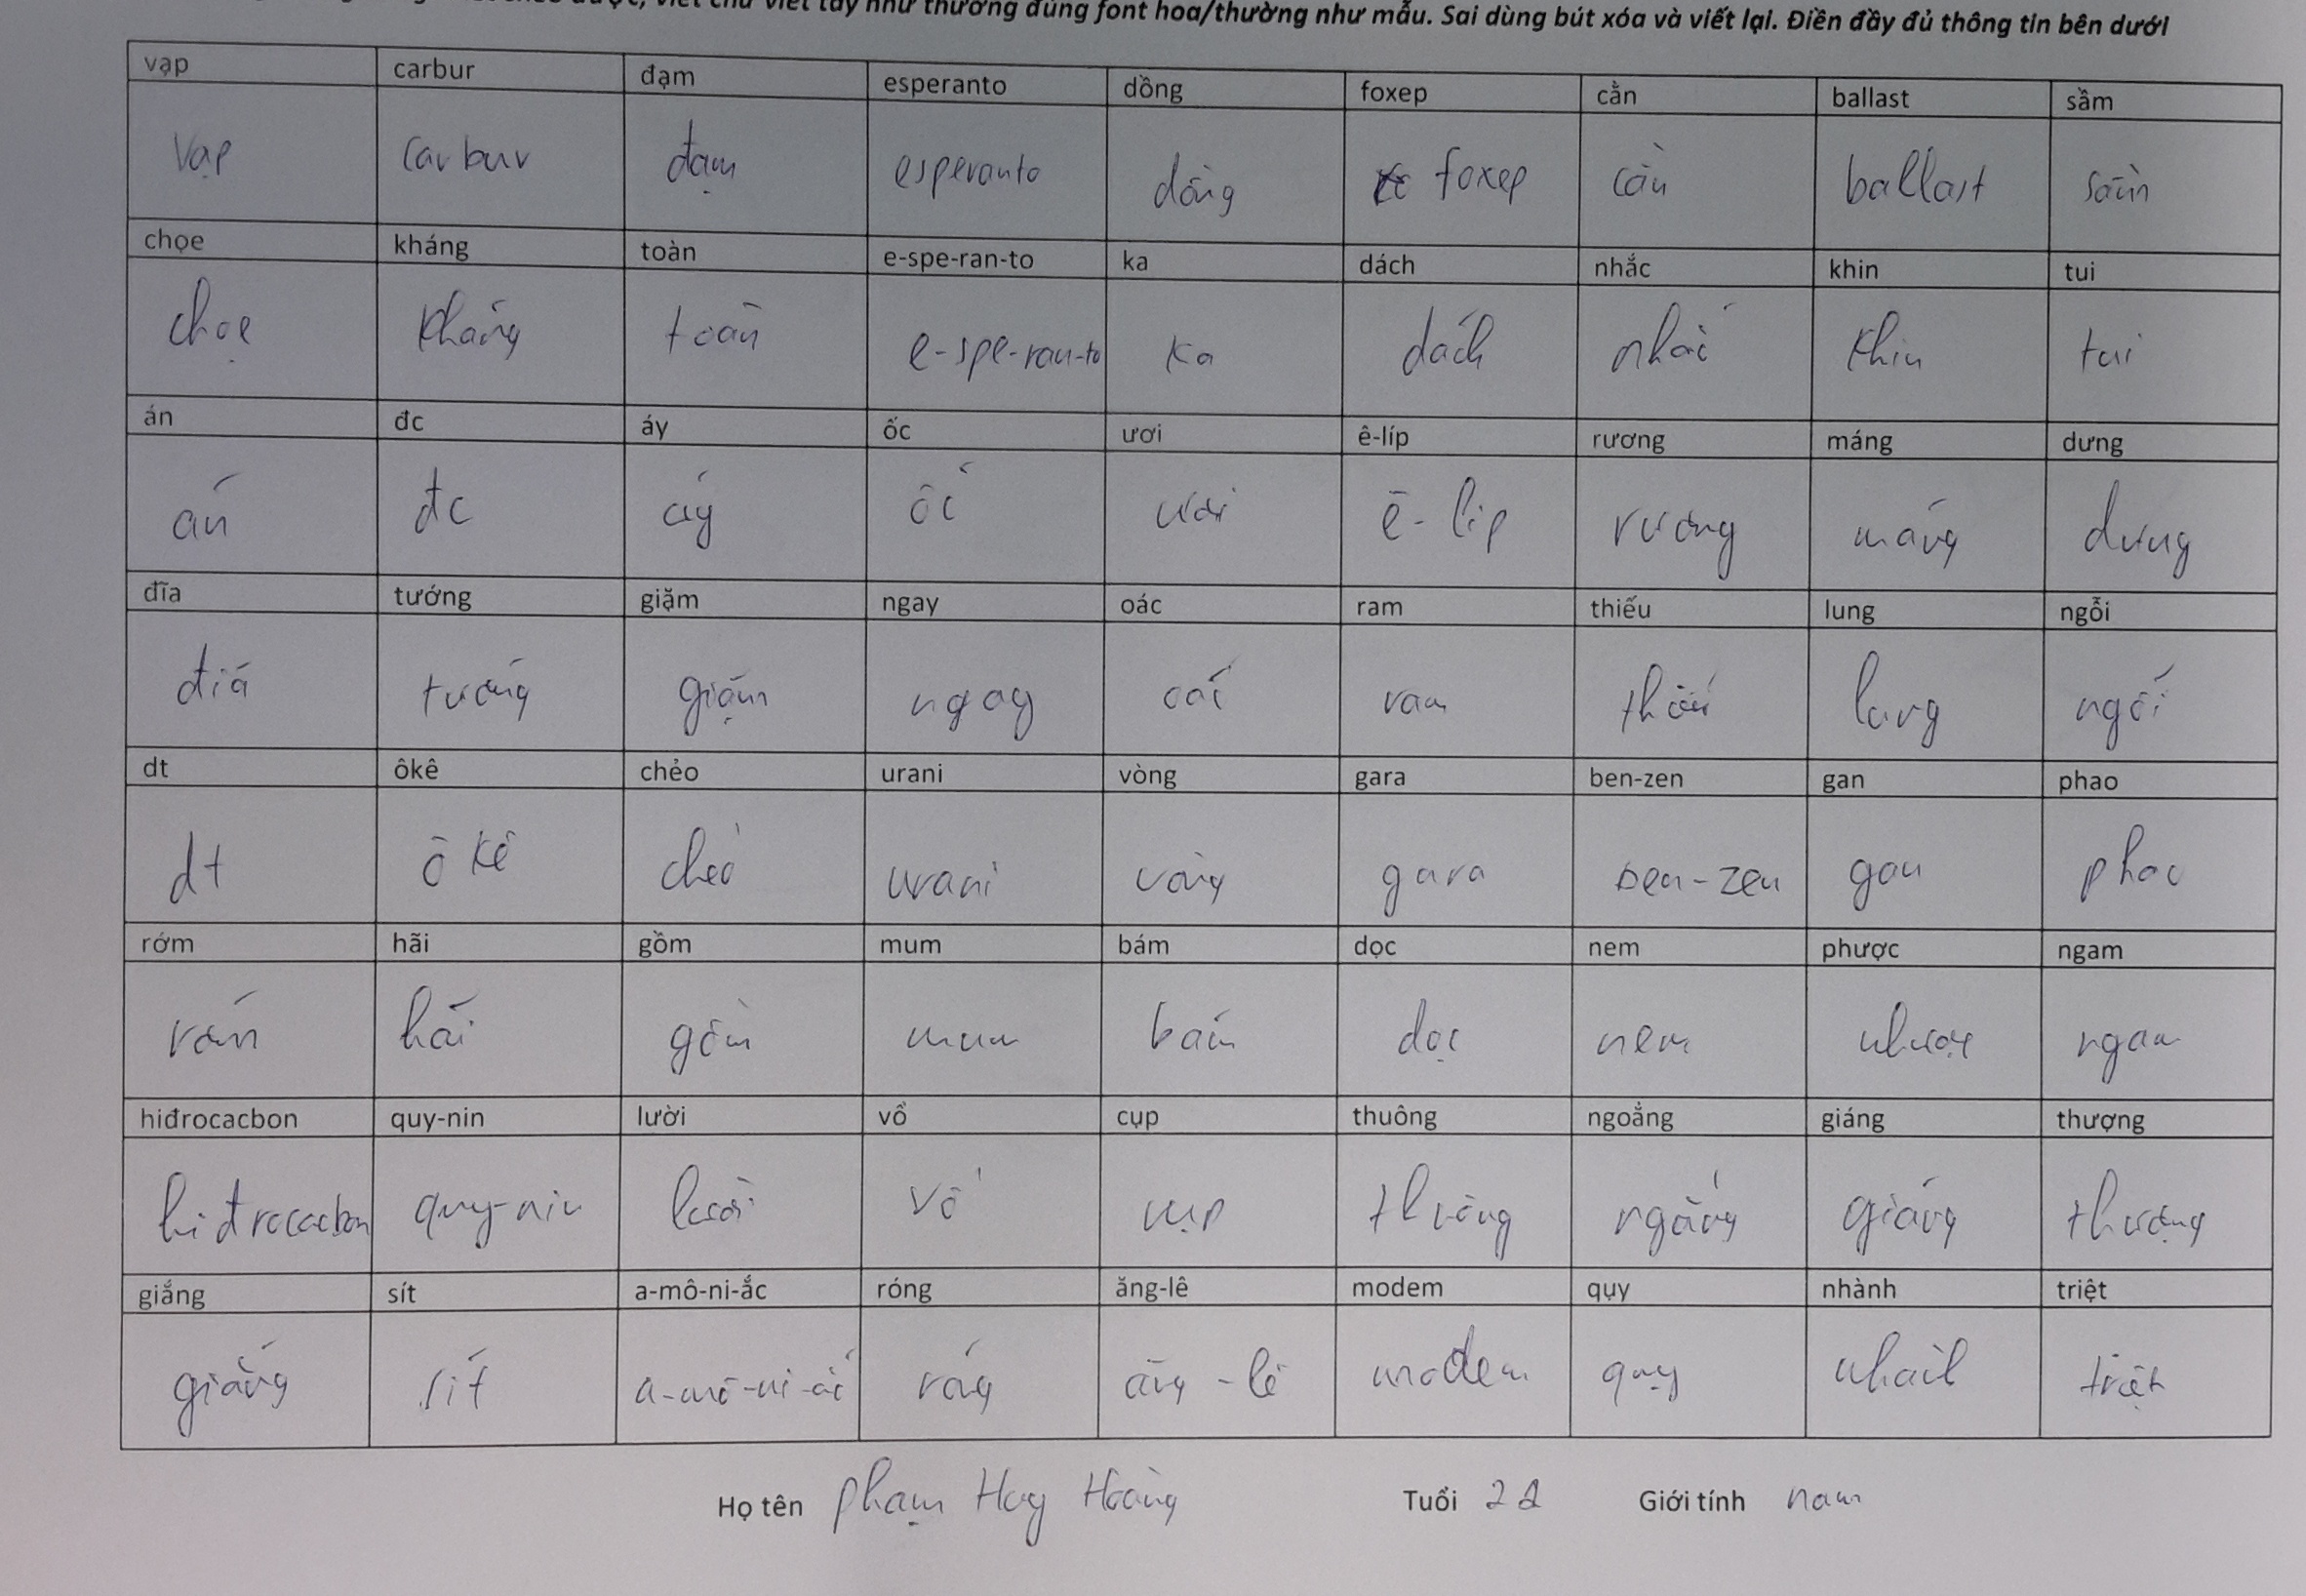 viết chữ viết tay như thường đúng font hoa/thường như mẫu. Sai dùng bút xóa và viết lại. Điền đầy đủ thông tin bên dưới
vạp carbur đạm esperanto dồng foxep cằn ballast sầm
vạp carbur đạm esperanto dồng foxep cằn ballast sầm
chọe kháng toàn e-spe-ran-to ka dách nhắc khin tui
chọe kháng toàn e-spe-ran-to ka dách nhắc khin tui
án đc áy ốc ươi ê-líp rương máng dưng
án đc áy ốc ươi ê-líp rương máng dưng
đĩa tướng giặm ngay oác ram thiếu lung ngỗi
đĩa tướng giặm ngay oác ram thiếu lung ngỗi
dt ôkê chẻo urani vòng gara ben-zen gan phao
dt ôkê chẻo urani vòng gara ben-zen gan phao
rớm hãi gồm mum bám dọc nem phược ngam
rớm hãi gồm mum bám dọc nem ngam
hiđrocacbon quy-nin lười vổ cụp thuông ngoẳng giáng thượng
hiđrocacbon quy-nin lười vổ cụp thuông ngẳng giáng thượng
giắng sít a-mô-ni-ắc róng ăng-lê modem quỵ nhành triệt
giắng sít a-mô-ni-ắc róng ăng-lê modem quỵ nhành triệt
Họ tên Phạm Huy Hoàng Tuổi 22 Giới tính nam